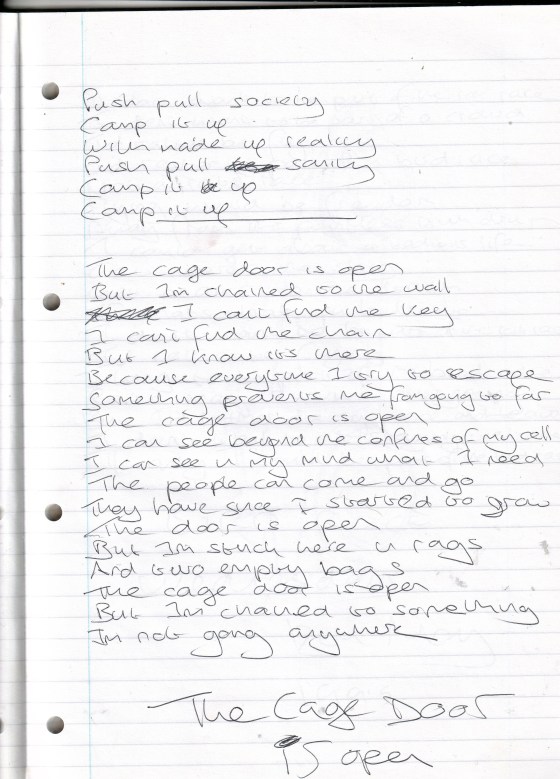 Push pull society
Camp it up
With made up reality
Push pull sanity
Camp it up
Camp it up
The cage door is open
But Im chained to the wall
I can't find the key
I can't find the chain
But I know its there
Because everytime I try to escape
Something prevents me from going to far
The cage door is open
I can see beyond the confines of my cell
I can see in my mind what I need
The people can come and go
They have since I started to grow
The door is open
But Im stuck here in rags
And two empty bags
The cage door is open
But Im chained to something
Im not going anywhere
The Cage Door
is open